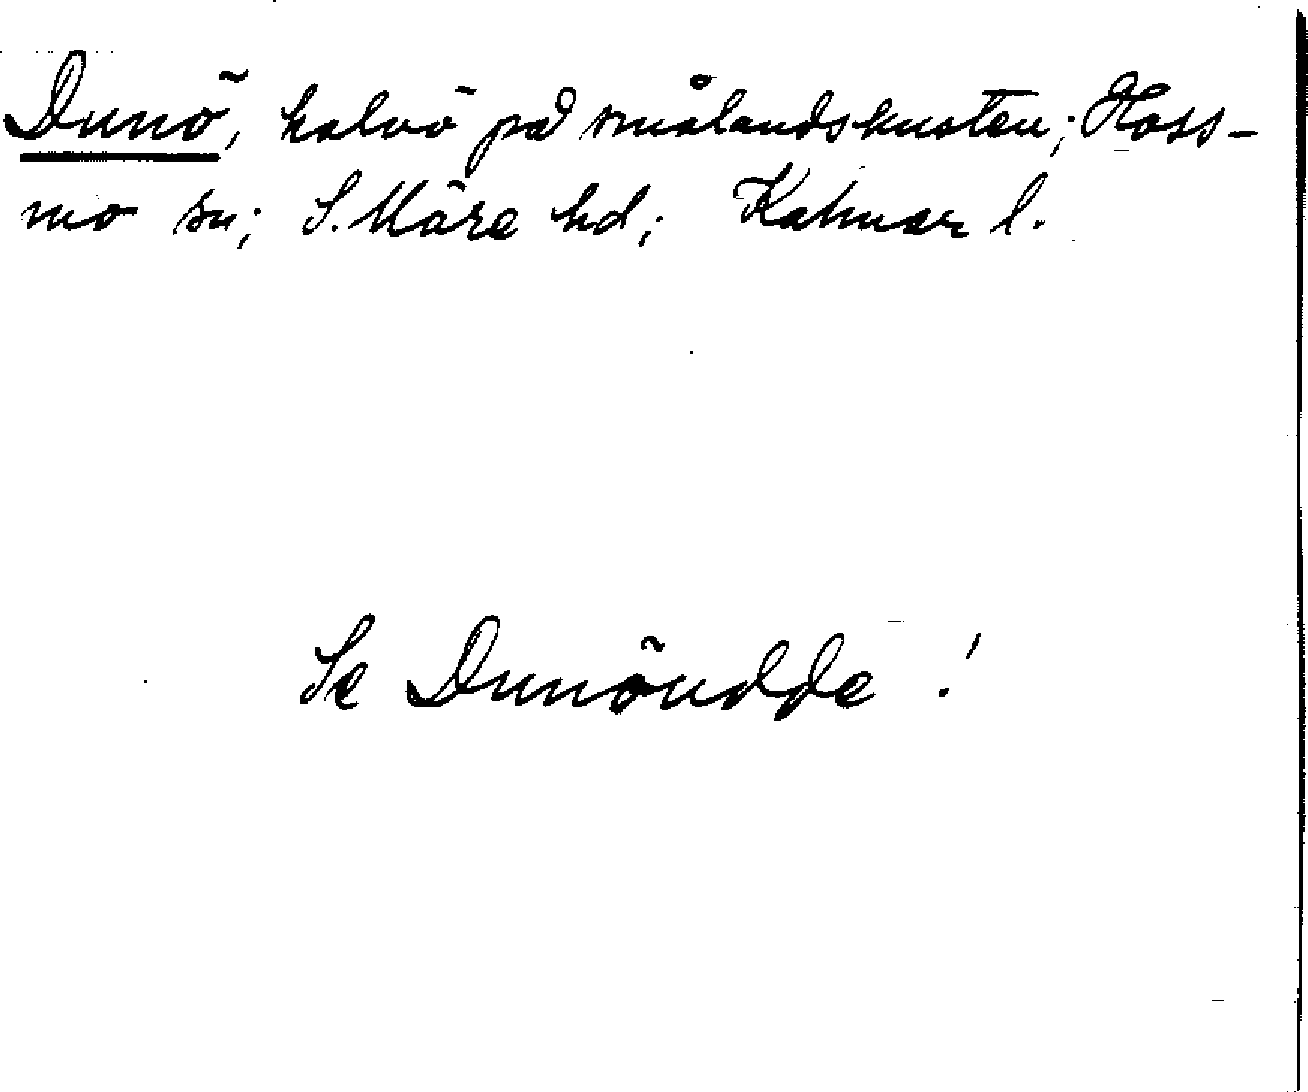 Dunö, halvö på smålandskusten; Hoss-
mo sn; S. Möre hd; Kalmar l.
Se Dunöudde!